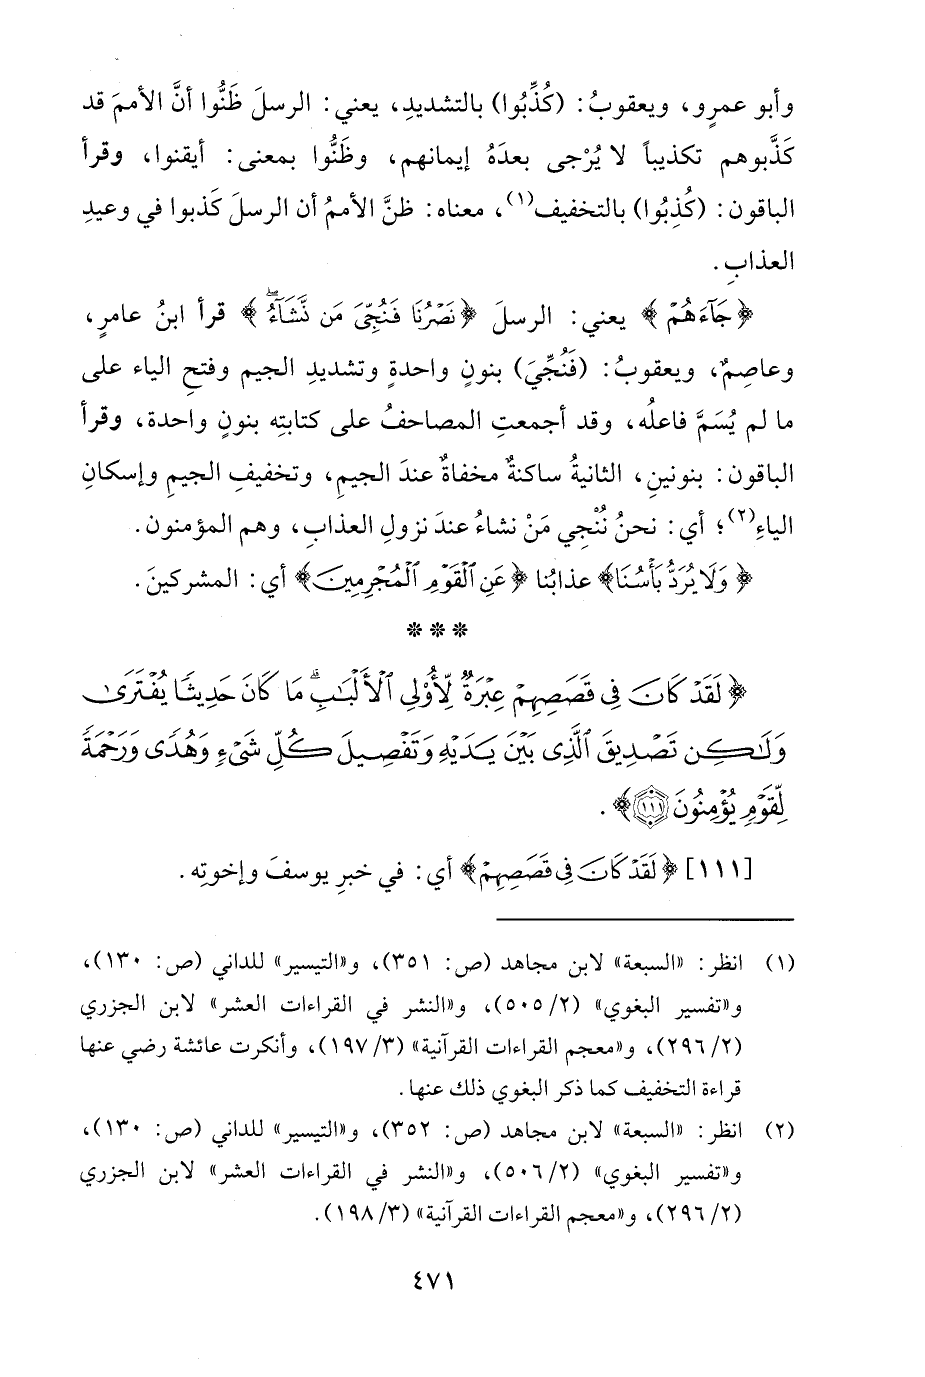 وأبو عمرٍو، ويعقوبُ: (كُذِّبُوا) بالتشديدِ، يعني: الرسلَ ظَنُّوا أنَّ الأممَ قد
كَذَّبوهم تكذيباً لا يُرْجى بعدَهُ إيمانهم، وظَنُّوا بمعنى: أيقنوا، وقرأ
الباقون: (كُذِبُوا) بالتخفيف(١)، معناه: ظنَّ الأممُ أن الرسلَ كَذبوا في وعيدِ
العذابِ.
﴿جَآءَهُمْ﴾ يعني: الرسلَ ﴿نَصْرُنَا فَنُجِّىَ مَن نَّشَآءُۖ﴾ قرأ ابنُ عامرٍ،
وعاصِمٌ، ويعقوبُ: (فَنُجِّيَ) بنونٍ واحدةٍ وتشديدِ الجيم وفتحِ الياء على
ما لم يُسَمَّ فاعلُه، وقد أجمعتِ المصاحفُ على كتابتِه بنونٍ واحدة، وقرأ
الباقون: بنونينِ، الثانيةُ ساكنةٌ مخفاةٌ عندَ الجيمِ، وتخفيفِ الجيمِ وإسكانِ
الياءِ(٢)؛ أي: نحنُ نُنْجِي مَنْ نشاءُ عندَ نزولِ العذاب، وهم المؤمنون.
﴿وَلَا يُرَدُّ بَأْسُنَا﴾ عذابُنا ﴿عَنِ ٱلْقَوْمِ ٱلْمُجْرِمِينَ﴾ أي: المشركينَ.
***
﴿لَقَدْ كَانَ فِى قَصَصِهِمْ عِبْرَةٌ لِّأُوْلِى ٱلْأَلْبَٰبِۗ مَا كَانَ حَدِيثًا يُفْتَرَىٰ
وَلَٰكِن تَصْدِيقَ ٱلَّذِى بَيْنَ يَدَيْهِ وَتَفْصِيلَ كُلِّ شَىْءٍ وَهُدًى وَرَحْمَةً
لِّقَوْمٍ يُؤْمِنُونَ ۝١١١﴾.
[١١١] ﴿لَقَدْ كَانَ فِى قَصَصِهِمْ﴾ أي: في خبرِ يوسفَ وإخوتِه.
(١) انظر: «السبعة» لابن مجاهد (ص: ٣٥١)، و«التيسير» للداني (ص: ١٣٠)،
و«تفسير البغوي» (٢/ ٥٠٥)، و«النشر في القراءات العشر» لابن الجزري
(٢/ ٢٩٦)، و«معجم القراءات القرآنية» (٣/ ١٩٧)، وأنكرت عائشة رضي عنها
قراءة التخفيف كما ذكر البغوي ذلك عنها.
(٢) انظر: «السبعة» لابن مجاهد (ص: ٣٥٢)، و«التيسير» للداني (ص: ١٣٠)،
و«تفسير البغوي» (٢/ ٥٠٦)، و«النشر في القراءات العشر» لابن الجزري
(٢/ ٢٩٦)، و«معجم القراءات القرآنية» (٣/ ١٩٨).
٤٧١